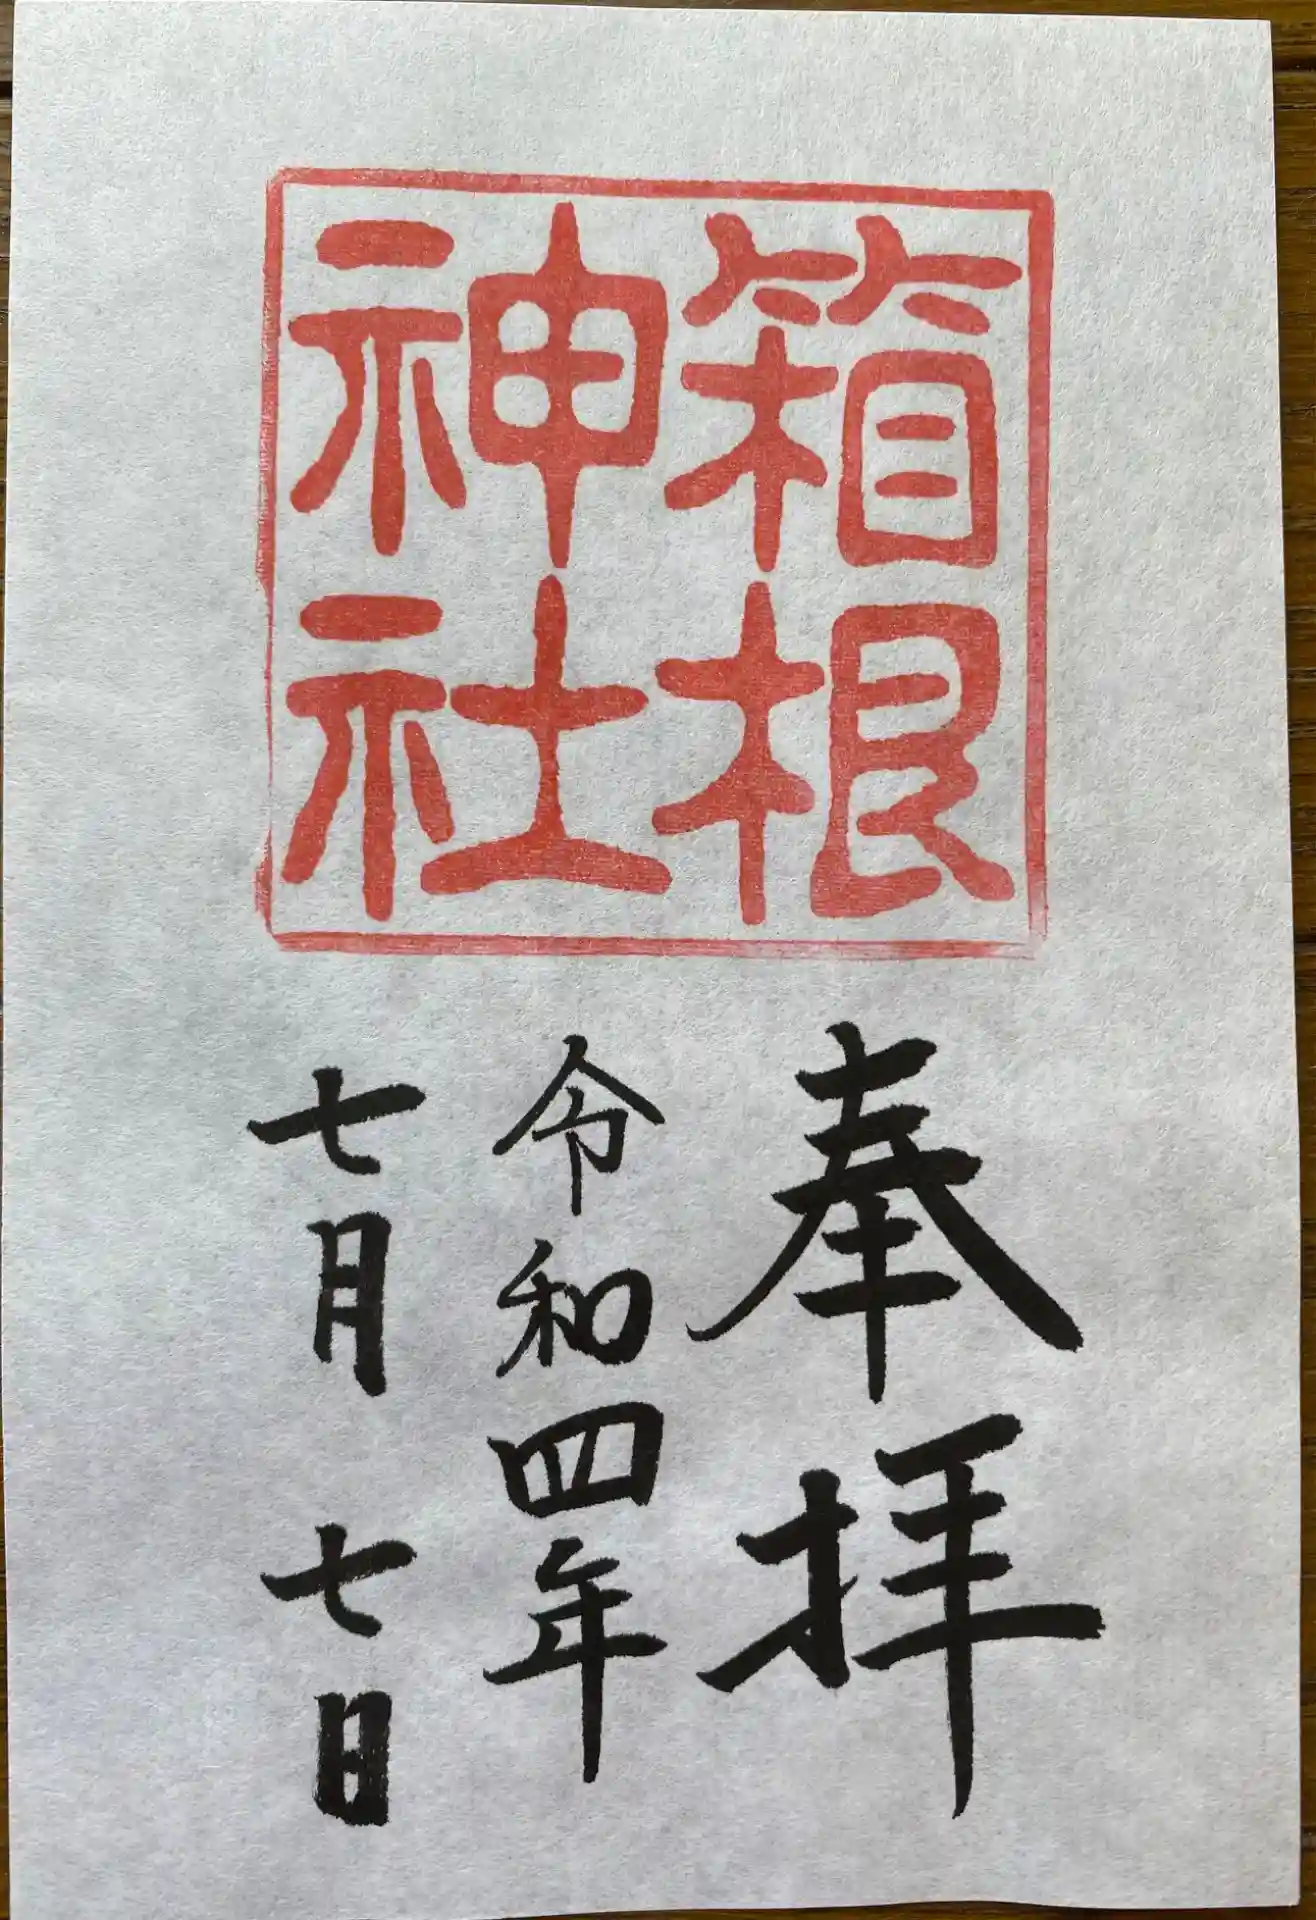 箱根
神社
奉拝
令和四年
七月七日